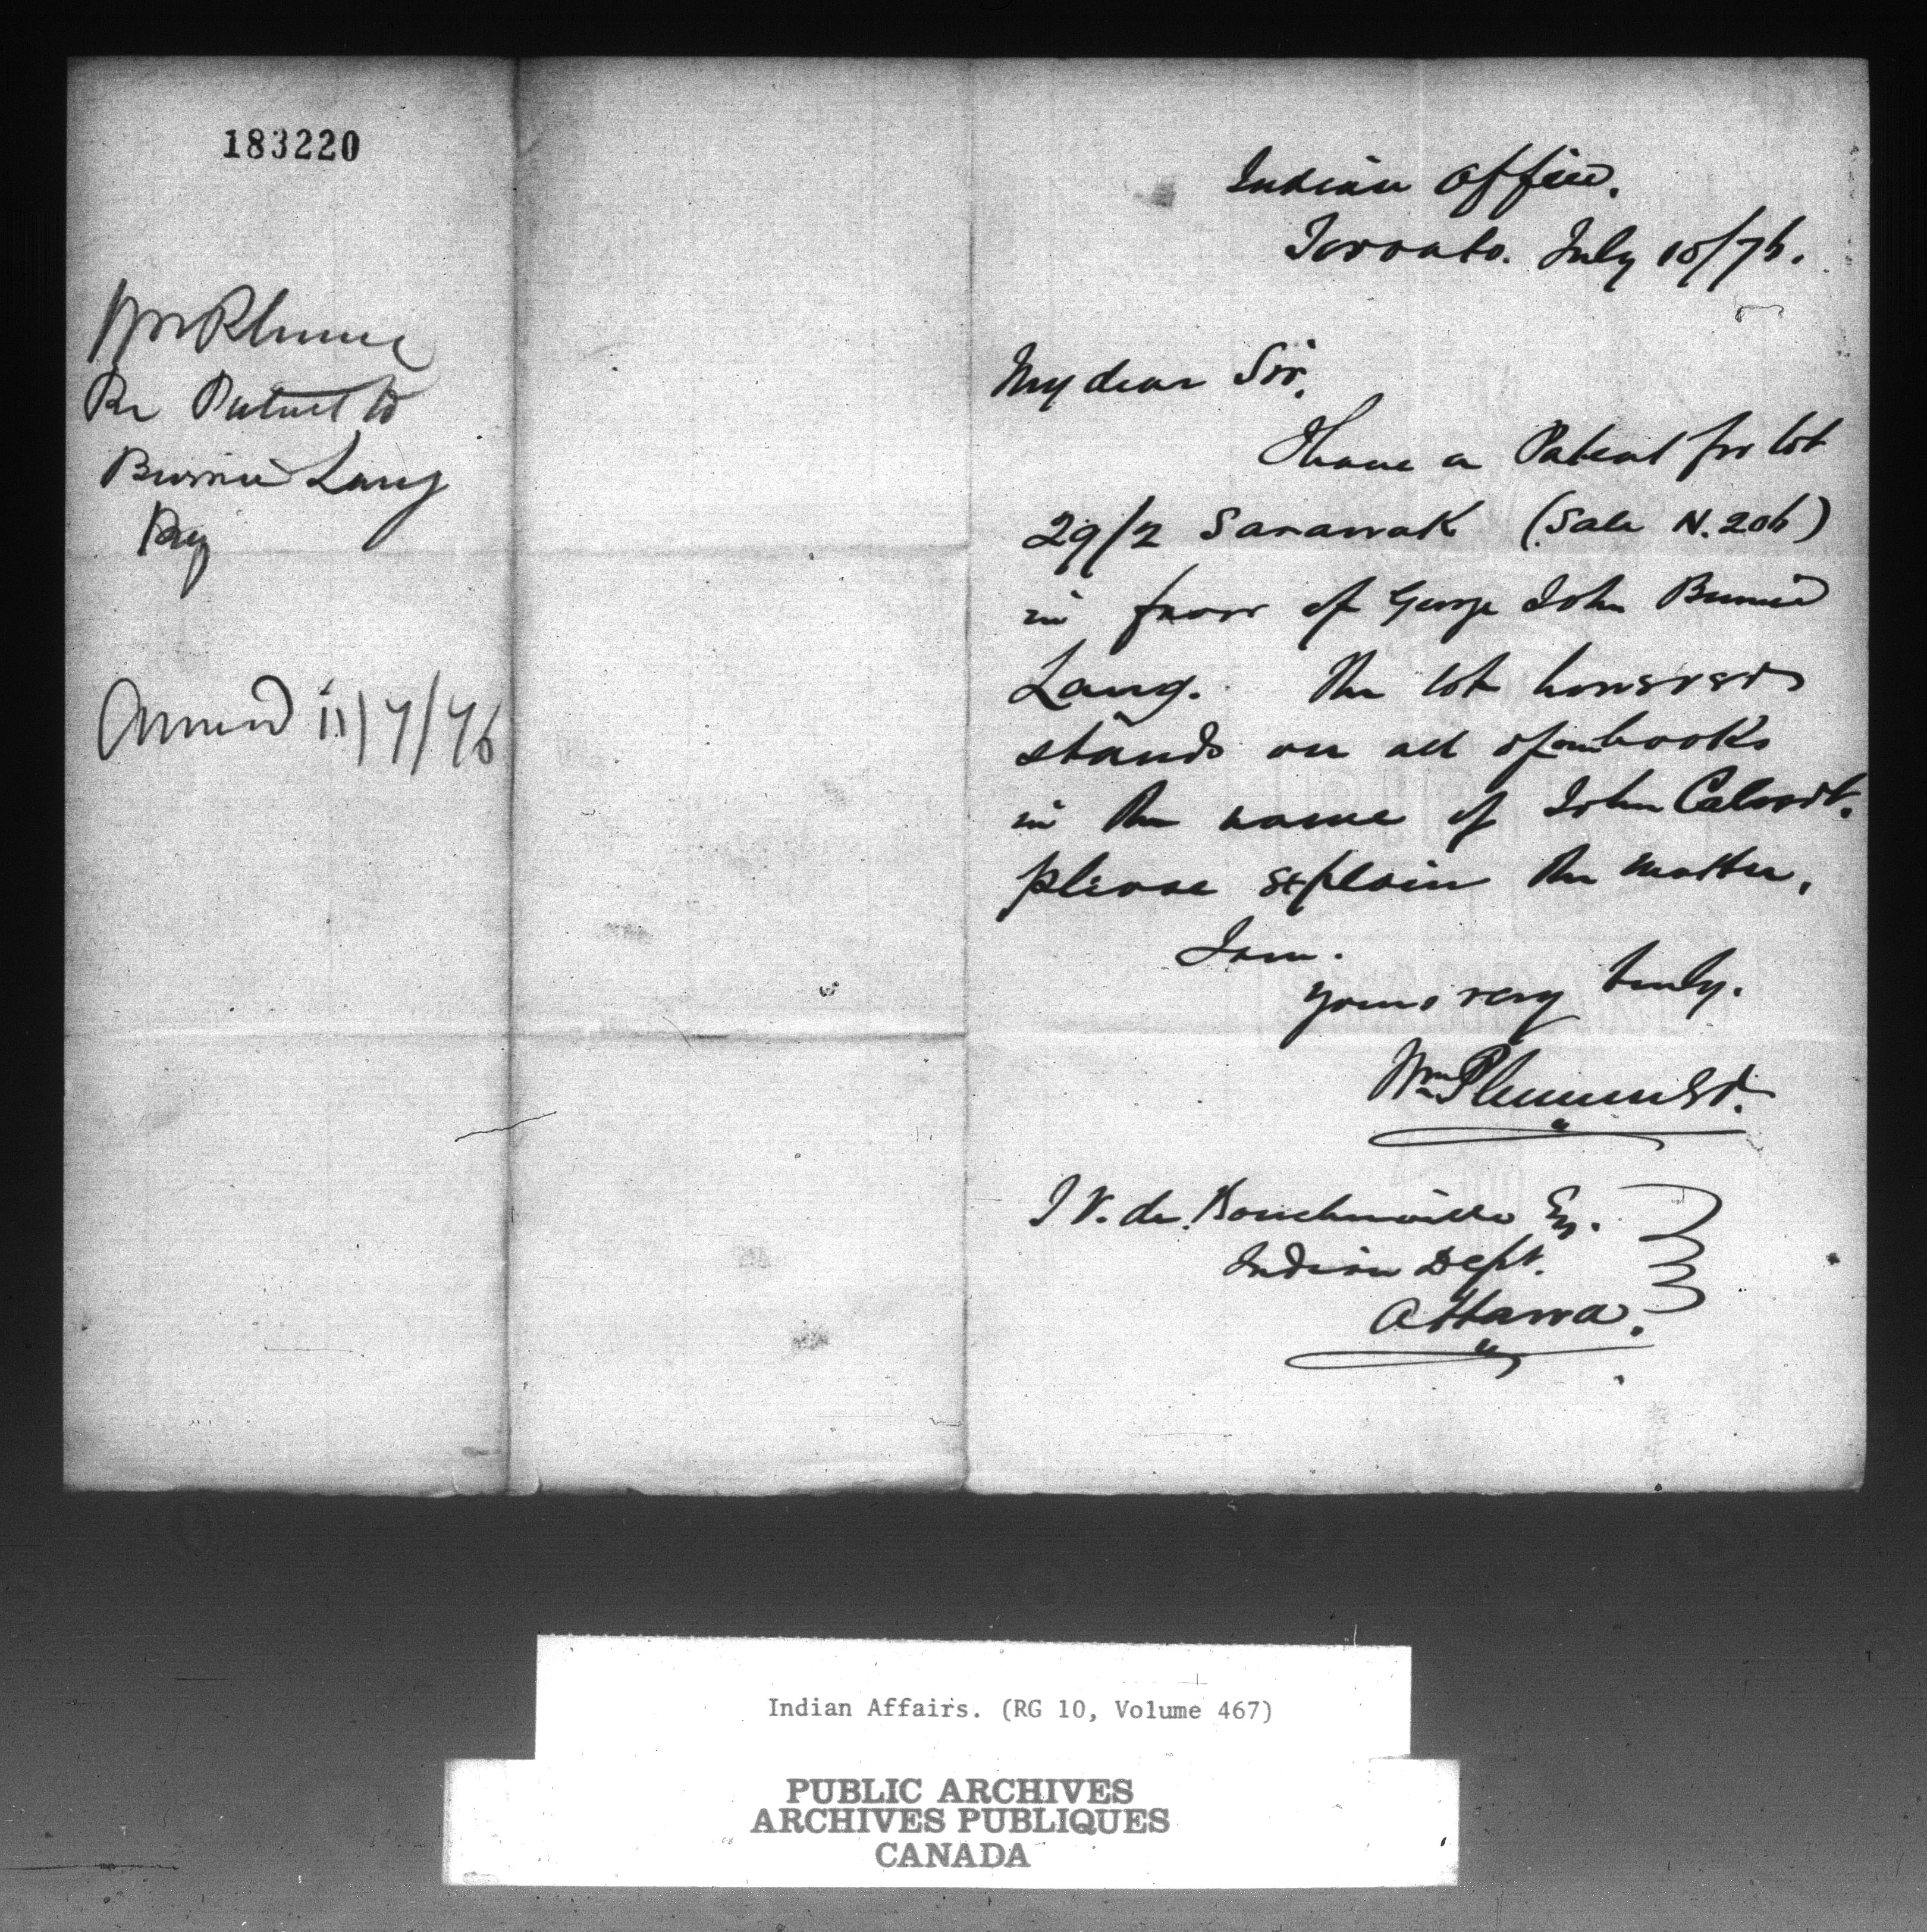 183220
Wm Plummer
Re Patent to
Burnie Lang
Answd 11/7/76
Indian Office.
Toronto. July 10/76.
My dear Sir,
I have a Patent for lot
29/2 Sarawak (Sale N. 206)
in favor of George John Burnie
Lang. The lot however
stands on all of our books
in the name of John Calvert.
please explain the matter,
I am.
yours very truly.
Wm Plummer.
J V. de Boucherville Esq.
Indian Dept.
Ottawa.
Indian Affairs. (RG 10, Volume 467)
PUBLIC ARCHIVES
ARCHIVES PUBLIQUES
CANADA